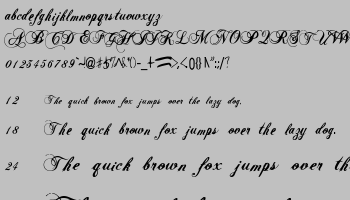 abcdefghijklmnopqrstuvwxyz
ABCDEFGHIJKLMNOPQRSTUVW
0123456789
12 The quick brown fox jumps over the lazy dog.
18 The quick brown fox jumps over the lazy dog.
24 The quick brown fox jumps over th